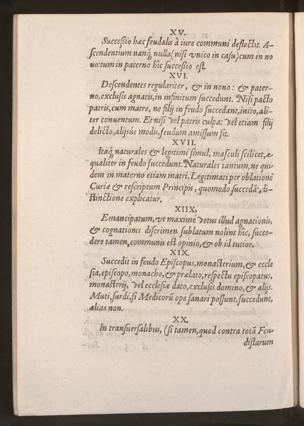 XV.
Successio hæc feudalis à iure communi deflectit. A-
scendentium nanq; nulla (nisi vnico in casu) cum en no
uo tum in paterno hîc successio est.
XVI.
Descendentes regulariter, & in nouo: & pater-
no, exclusis agnatis, in infinitum succedunt. Nisi pacto
patris, cum matre, ne filij in feudo succedant, inito, ali-
ter conuentum. Et nisi vel patris culpa: vel etiam filij
delicto, alijsue modis, feudum amissum sit.
XVII.
Itaq; naturales & legitimi simul, masculi scilicet, æ-
qualiter in feudo succedunt. Naturales tantum, ne qui-
dem in materno etiam matri. Legitimati per oblationẽ
Curiæ & rescriptum Principis, quomodo succedãt, di-
stinctione explicatur.
XIIX.
Emancipatum, vt maxime vetus illud agnationis,
& cognationis discrimen sublatum nolint hîc, succe-
dere tamen, communis est opinio, & ob id tutior.
XIX.
Succedit in feudo Episcopus, monasterium, & eccle
sia, episcopo, monacho, & prælato, respectu episcopatus,
monasterij, vel ecclesiæ dato, exclusis domino, & alijs.
Muti, surdi, si Medicorũ ope sanari possunt, succedunt,
alias non.
XX.
In transuersalibus, (si tamen, quod contra totã Feu-
distarum